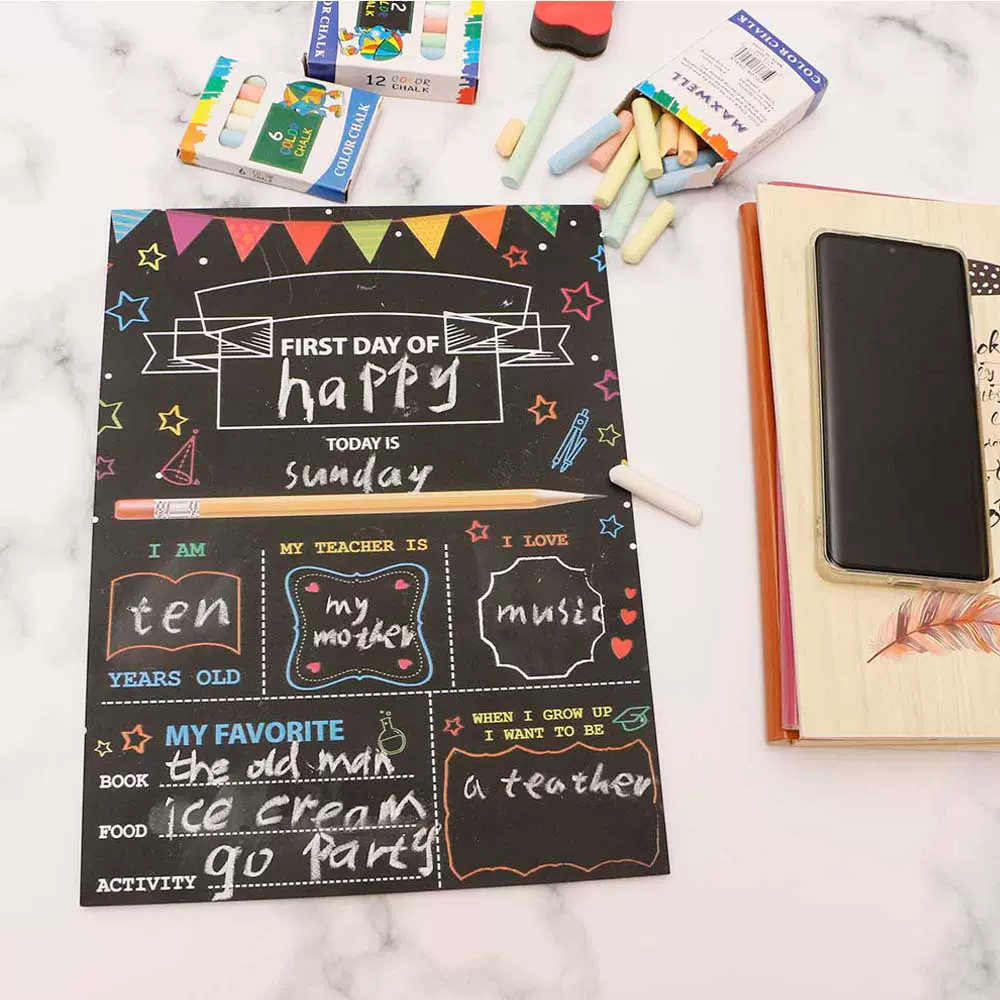 COLOR CHALK
12
12 COLOR CHALK
6
COLOR
CHALK
COLOR CHALK
COLOR CHALK
MAXWELL
FIRST DAY OF
happy
TODAY IS
sunday
I AM
ten
YEARS OLD
MY TEACHER IS
my
mother
I LOVE
music
MY FAVORITE
BOOK the old man
FOOD ice cream
ACTIVITY go party
WHEN I GROW UP
I WANT TO BE
a teather